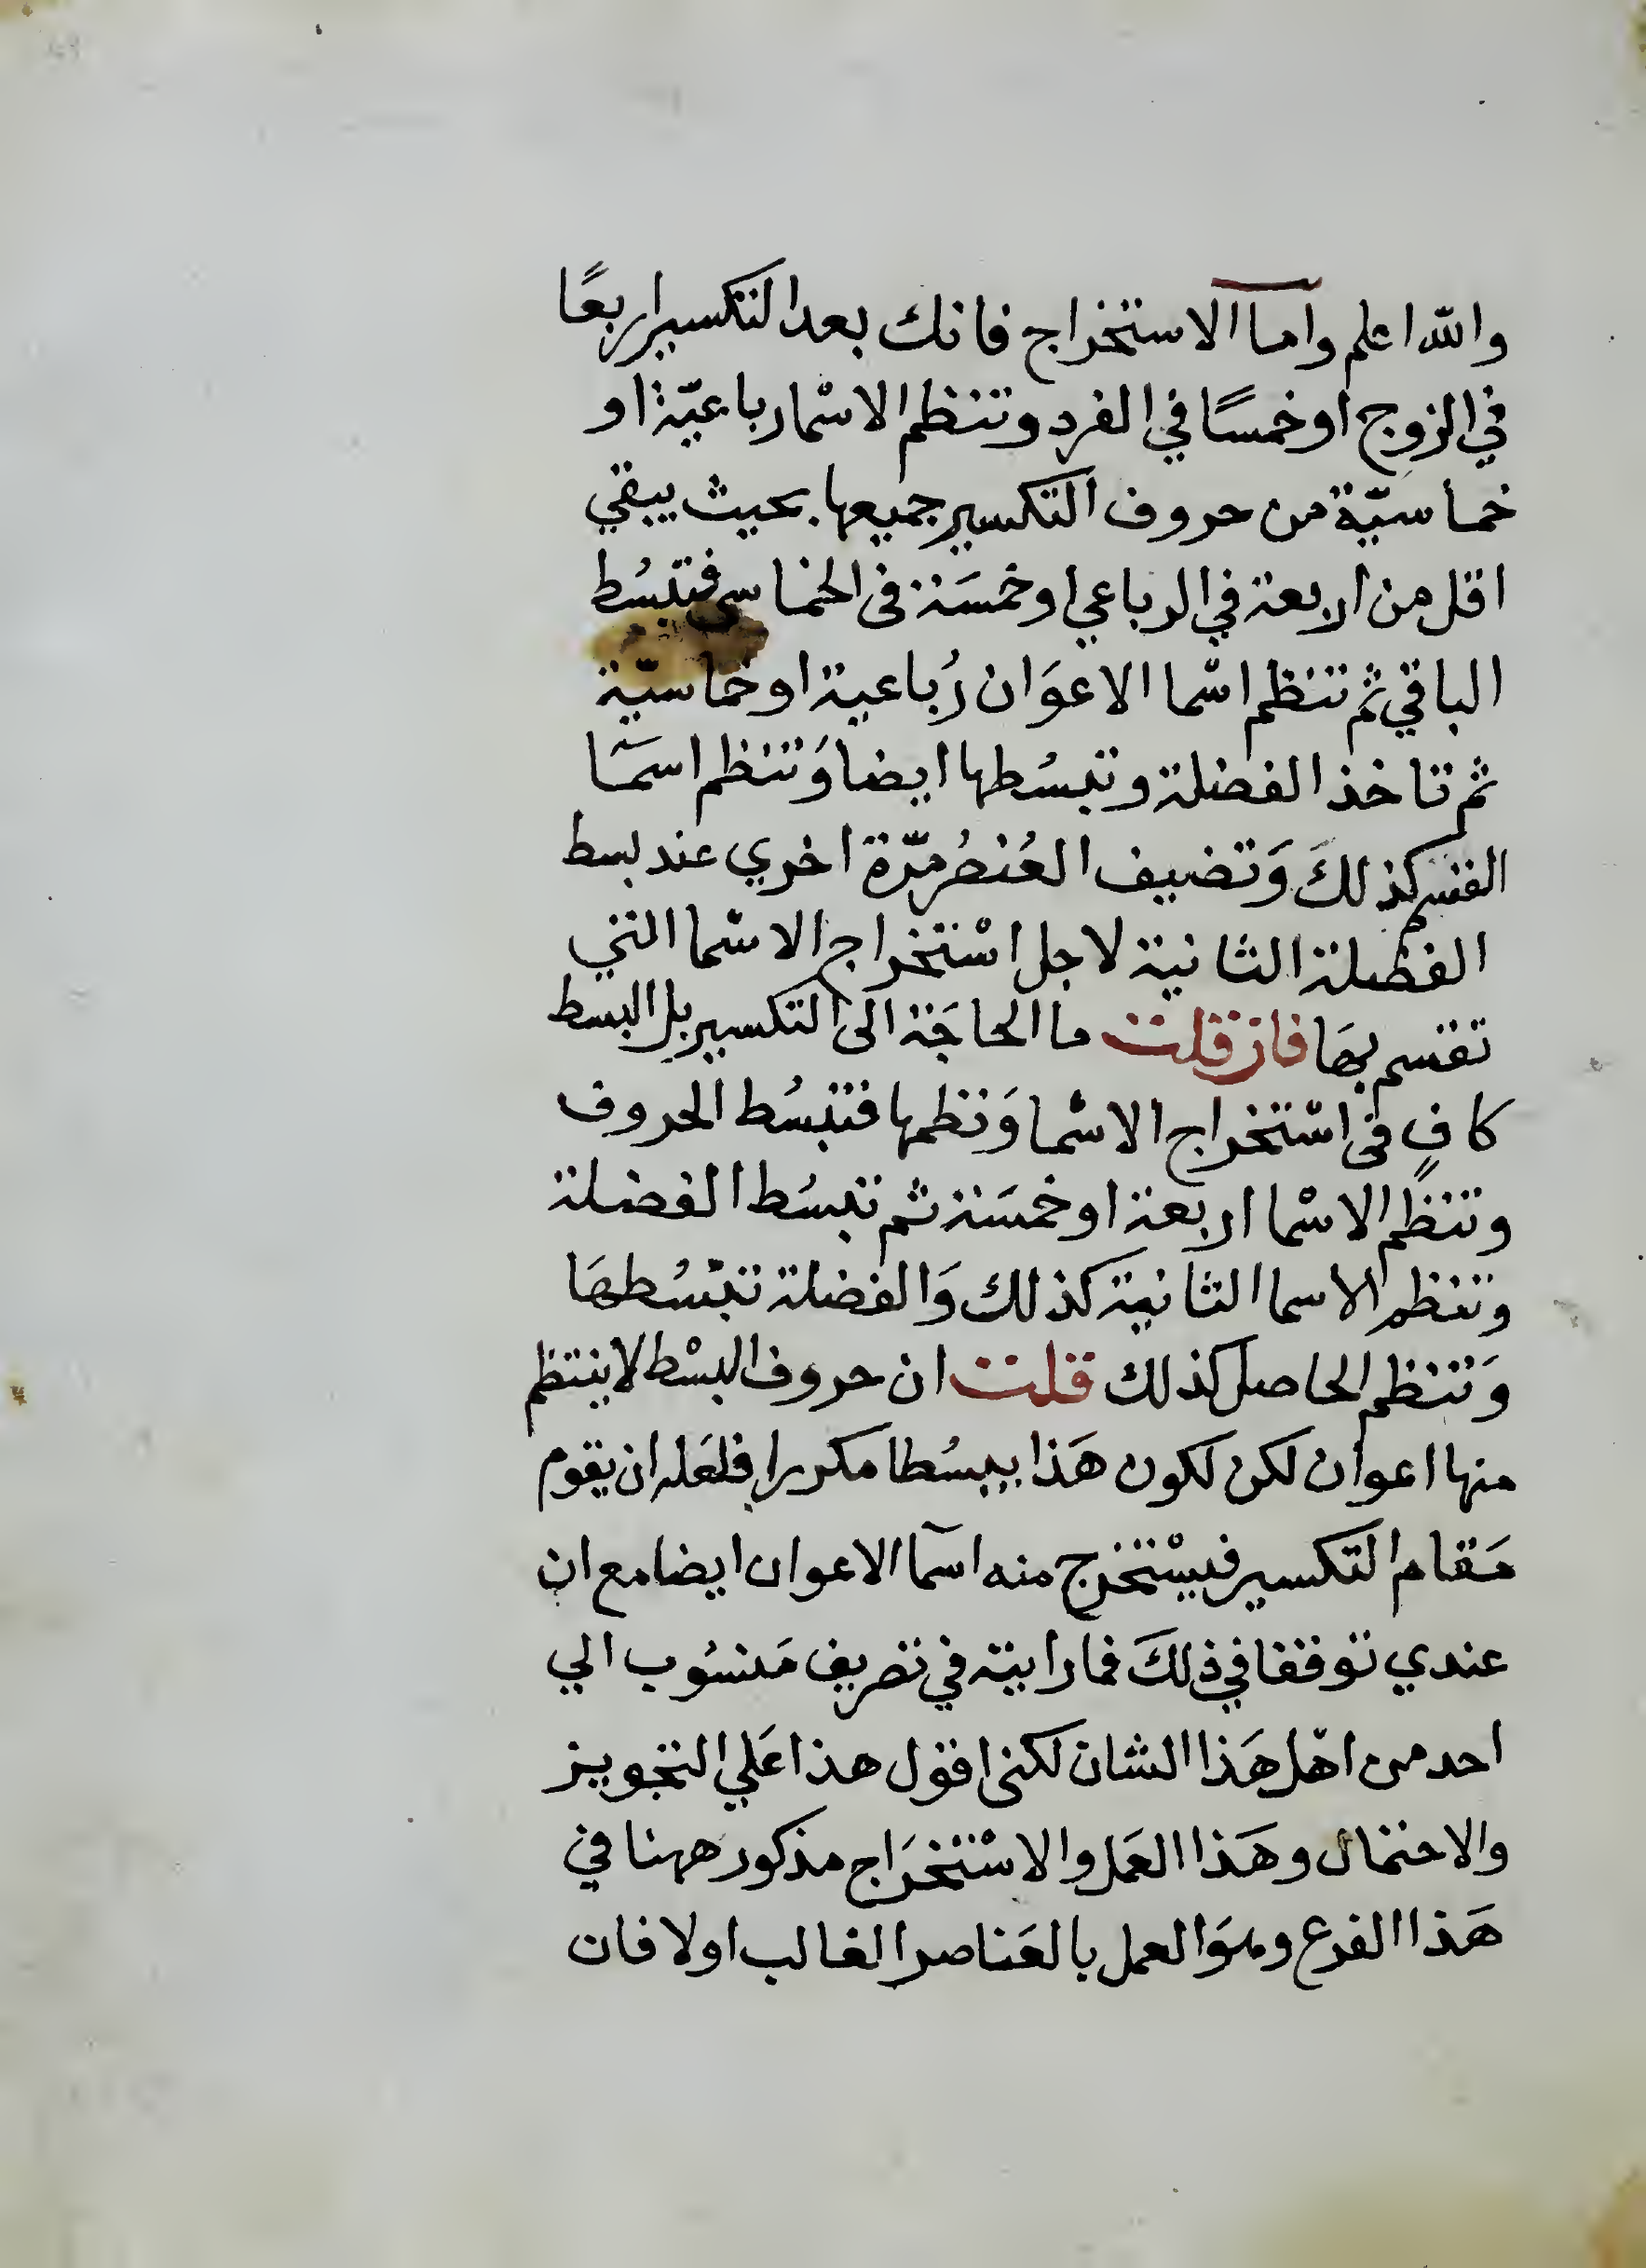 والله اعلم واما الاستخراج فانك بعد التكسير اربعًا
في الزوج او خمسًا في الفرد وتنظم الاسْما رباعيّة او
خماسيّة من حروف التكسير جميعها بحيث يبقي
اقل من اربعة في الرباعي او خمسَة في الخماسي فتبسُط
الباقي ثم تنظم اسّما الاعوَان رُباعية او خماسيّة
ثم تاخذ الفضلة وتبسُطها ايضا وَتنظم اسمَا
القسم كذلكَ وَتضيف العُنصُر مرّة اخري عند بسط
الفضلة الثانية لاجل اسْتخراج الاسّما التي
تقسم بهَا فان قلت ما الحاجَة الى التكسير بل البسط
كافٍ في اسْتخراج الاسْما وَنظمها فتبسُط الحروف
وتنظم الاسْما اربعة او خمسَة ثم تبسُط الفضلة
وتنظم الاسما الثانية كذلك وَالفضلة تبسُطهَا
وَتنظم الحاصل كذلك قلت ان حروف البسْط لا ينتظم
منها اعوان لكن لكون هَذا بيسُطا مكررا فلعَله ان يقوم
مَقام التكسير فيسْتخرج منه اسمآ الاعوان ايضا مع ان
عندي توقفا في ذلكَ فما رايته في تصريف مَنسُوب الي
احد من اهْل هَذا الشان لكنى اقول هذا عَلي التجويز
والاحتمال وهَذا العَمل والاسْتخرَاج مذكور ههنا في
هَذا الفرع وهوَ العمل بالعَناصر الغالب اولا فان